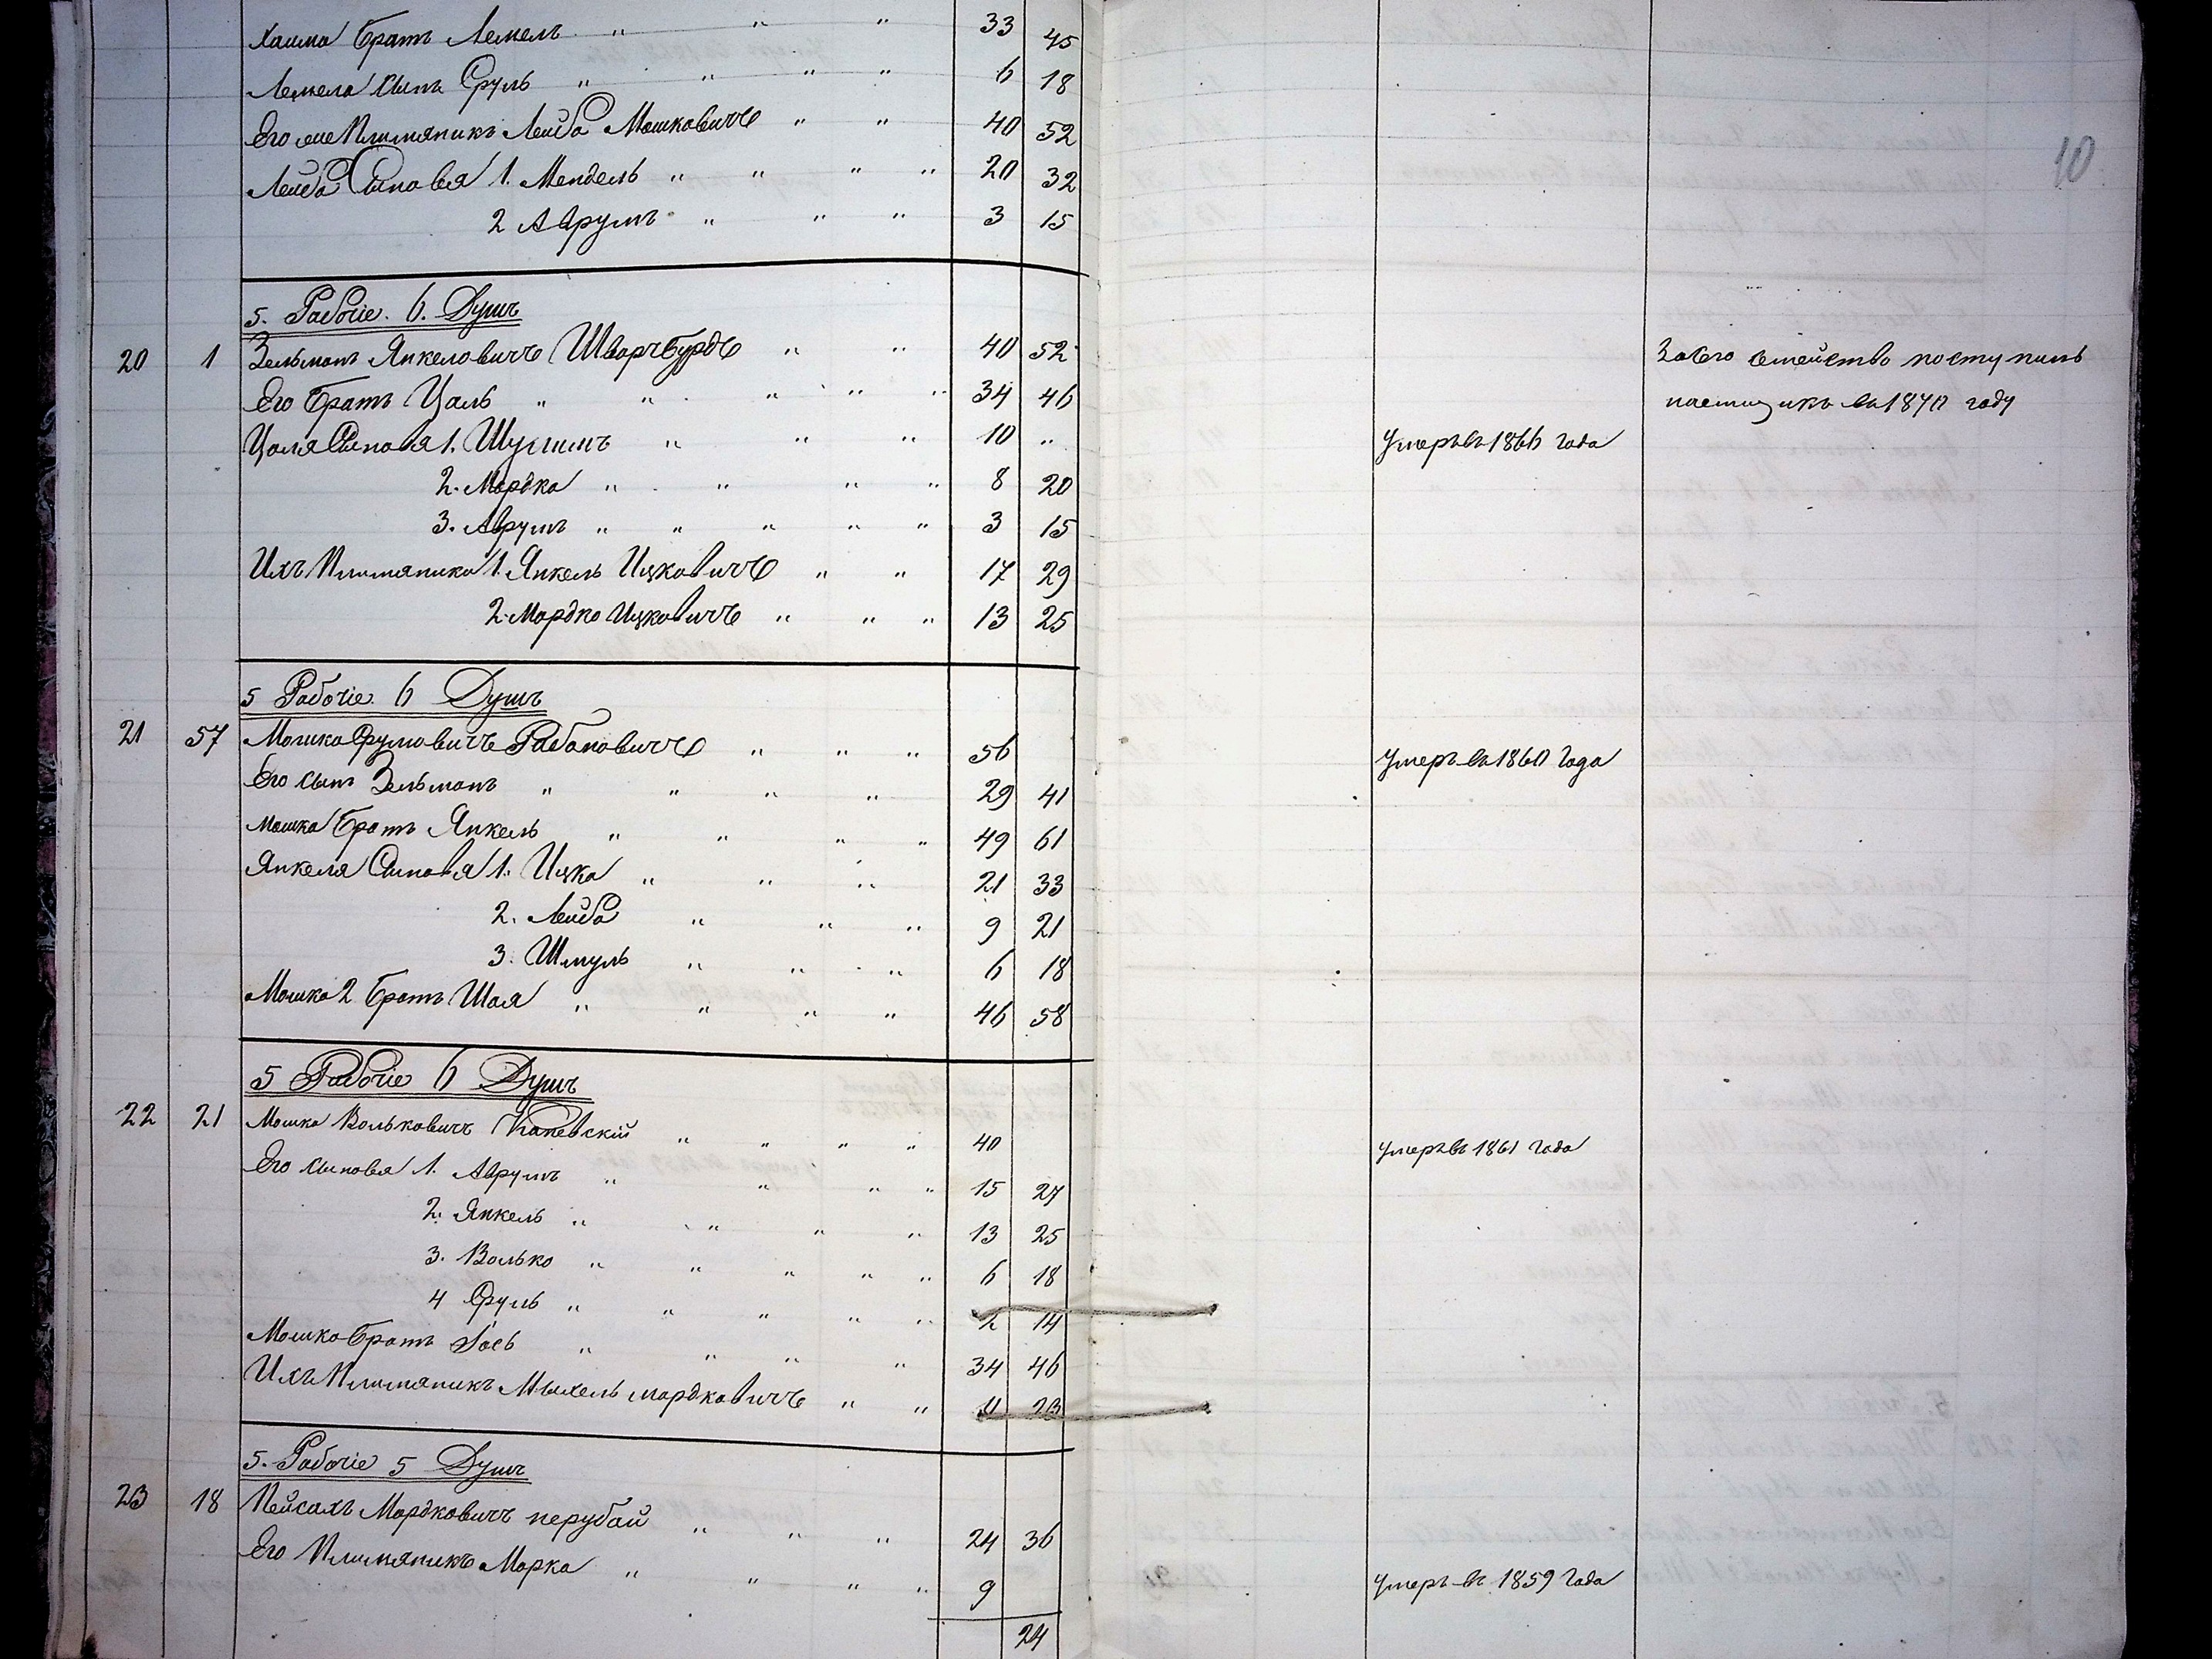 Хаима братъ Лемель " " " 33 45
Лемела сынъ Сруль " " " " 6 18
Его же Племяникъ Лейба Мошковичъ " " 40 52
Лейба Сыновья 1. Мендель " " " " 20 32
2 Аврумъ " " " 3 15
10
5. Рабочіе. 6. Душъ
20 1 Зельманъ Янкеловичъ Шварчбурдъ " " 40 52 За его семейство поступилъ
Его братъ Цаль " " " " " 34 46 наемщикъ въ 1870 году
Цаля Сыновья 1. Шулимъ " " " 10 " Умеръ въ 1866 года
2. Мордка " " " " 8 20
3. Аврумъ " " " " " 3 15
Ихъ Племяника 1. Янкель Ицковичъ " " 17 29
2. Мордко Ицковичъ " " " 13 25
5 Рабочіе. 6 Душъ
21 57 Мошко Срумовичъ Рабановичъ " " " 56 Умеръ въ 1860 года
Его сынъ Зельманъ " " " " 29 41
Мошка братъ Янкель " " " " 49 61
Янкеля Сыновья 1. Ицка " " " 21 33
2. Лейба " " " 9 21
3. Шмуль " " " 6 18
Мошка 2 братъ Шая " " " " 46 58
5 Рабочіе 6 Душъ
22 21 Мошка Вольковичъ Каневскій " " " " 40 Умеръ въ 1861 года
Его сыновья 1. Аврумъ " " " " 15 27
2. Янкель " " " " 13 25
3. Волько " " " " " 6 18
4 Сруль " " " " " 2 14
Мошко братъ Іось " " " " 34 46
Ихъ Племяникъ Мыхель мордковичъ " " 11 23
5. Рабочіе 5 Душъ
23 18 Пейсахъ Мордковичъ нерубай " " " 24 36
Его Племяникъ Марка " " " " 9 Умеръ въ 1859 года
24